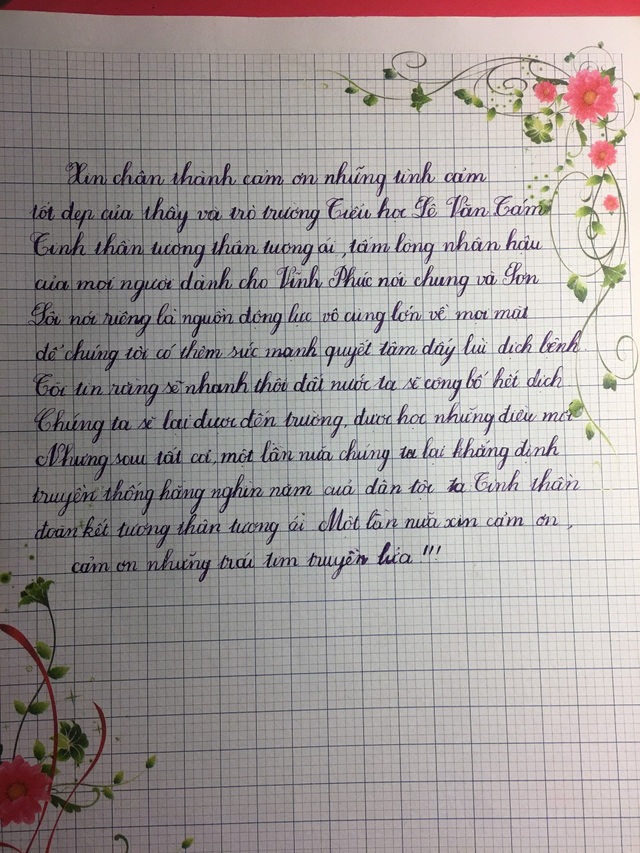 Xin chân thành cảm ơn những tình cảm
tốt đẹp của thầy và trò trường Tiểu học Lê Văn Tám
Tinh thần tương thân tương ái, tấm lòng nhân hậu
của mọi người dành cho Vĩnh Phúc nói chung và Sơn
Lôi nói riêng là nguồn động lực vô cùng lớn về mọi mặt
để chúng tôi có thêm sức mạnh quyết tâm đẩy lùi dịch bệnh
Tôi tin rằng sẽ nhanh thôi đất nước ta sẽ công bố hết dịch
Chúng ta sẽ lại được đến trường, được học những điều mới
Nhưng sau tất cả, một lần nữa chúng ta lại khẳng định
truyền thống hàng nghìn năm của dân tộc ta Tinh thần
đoàn kết tương thân tương ái Một lần nữa xin cảm ơn,
cảm ơn những trái tim truyền lửa !!!